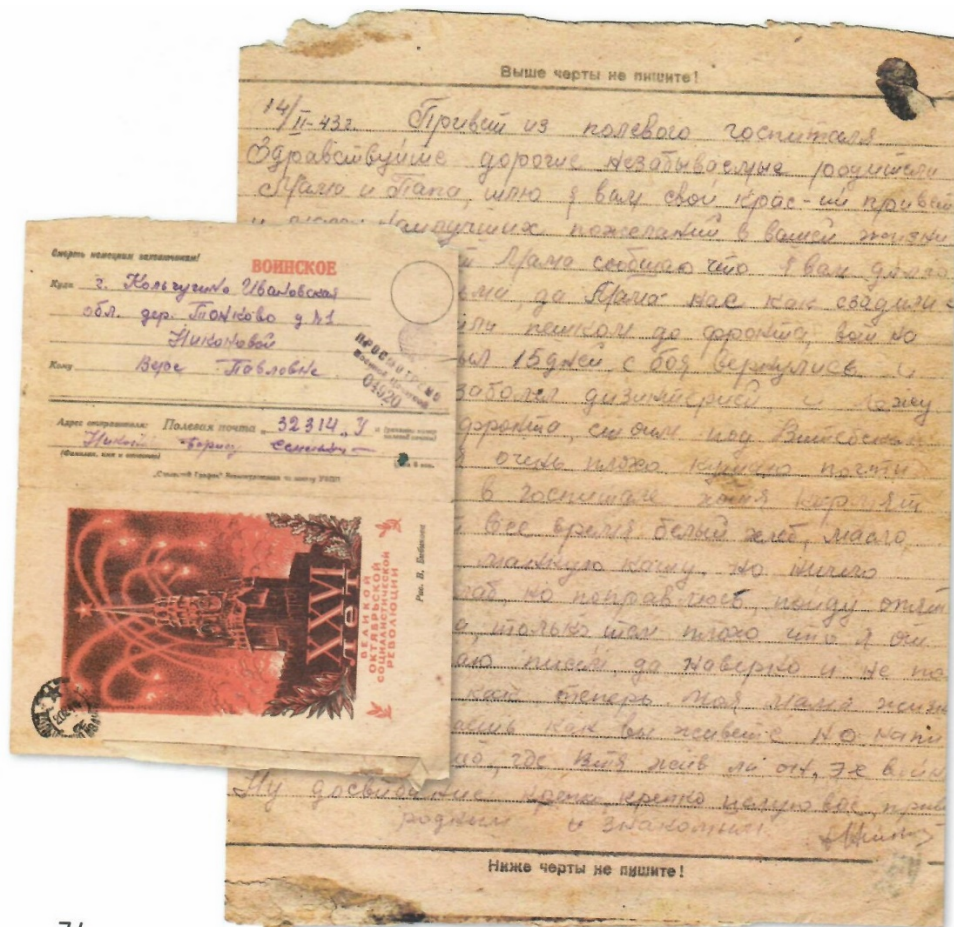 Выше черты не пишите!
14/II-43г. Привет из полевого госпиталя
Здравствуйте дорогие незабываемые родители
Мама и Папа, шлю я вам свой крас-ий привет
наилучших пожеланий в вашей жизни
Мама сообщаю что я вам долго
да Мама нас как ссадили с
пешком до фронта, вот на
был 15 дней, с боя вернулись и
заболел дизинтерией и лежу
фронта, стоим под Витебском
очень плохо кушаю почти
в госпитале хотя кормят
все время белый хлеб, масло,
манную кашу, но ничего
но поправлюсь, пойду опять
только тем плохо что я от
писем да наверно и не по
как теперь моя мама жизнь
как вы живете но напи
где Витя жив ли он, эх война
Ну досвидание крепко, крепко целую вас, привет
родным и знакомым.
Ниже черты не пишите!
Смерть немецким захватчикам!
ВОИНСКОЕ
Куда г. Кольчугино Ивановская
обл. дер. Тонково д №1
Никоновой
Кому Вере Павловне
ПРОСМОТРЕНО
Военной Цензурой
04920
Адрес отправителя: Полевая почта 32314 "У"
(Фамилия, имя и отчество)
XXVI
ЛЕТ
ВЕЛИКОЙ
ОКТЯБРЬСКОЙ
СОЦИАЛИСТИЧЕСКОЙ
РЕВОЛЮЦИИ
74